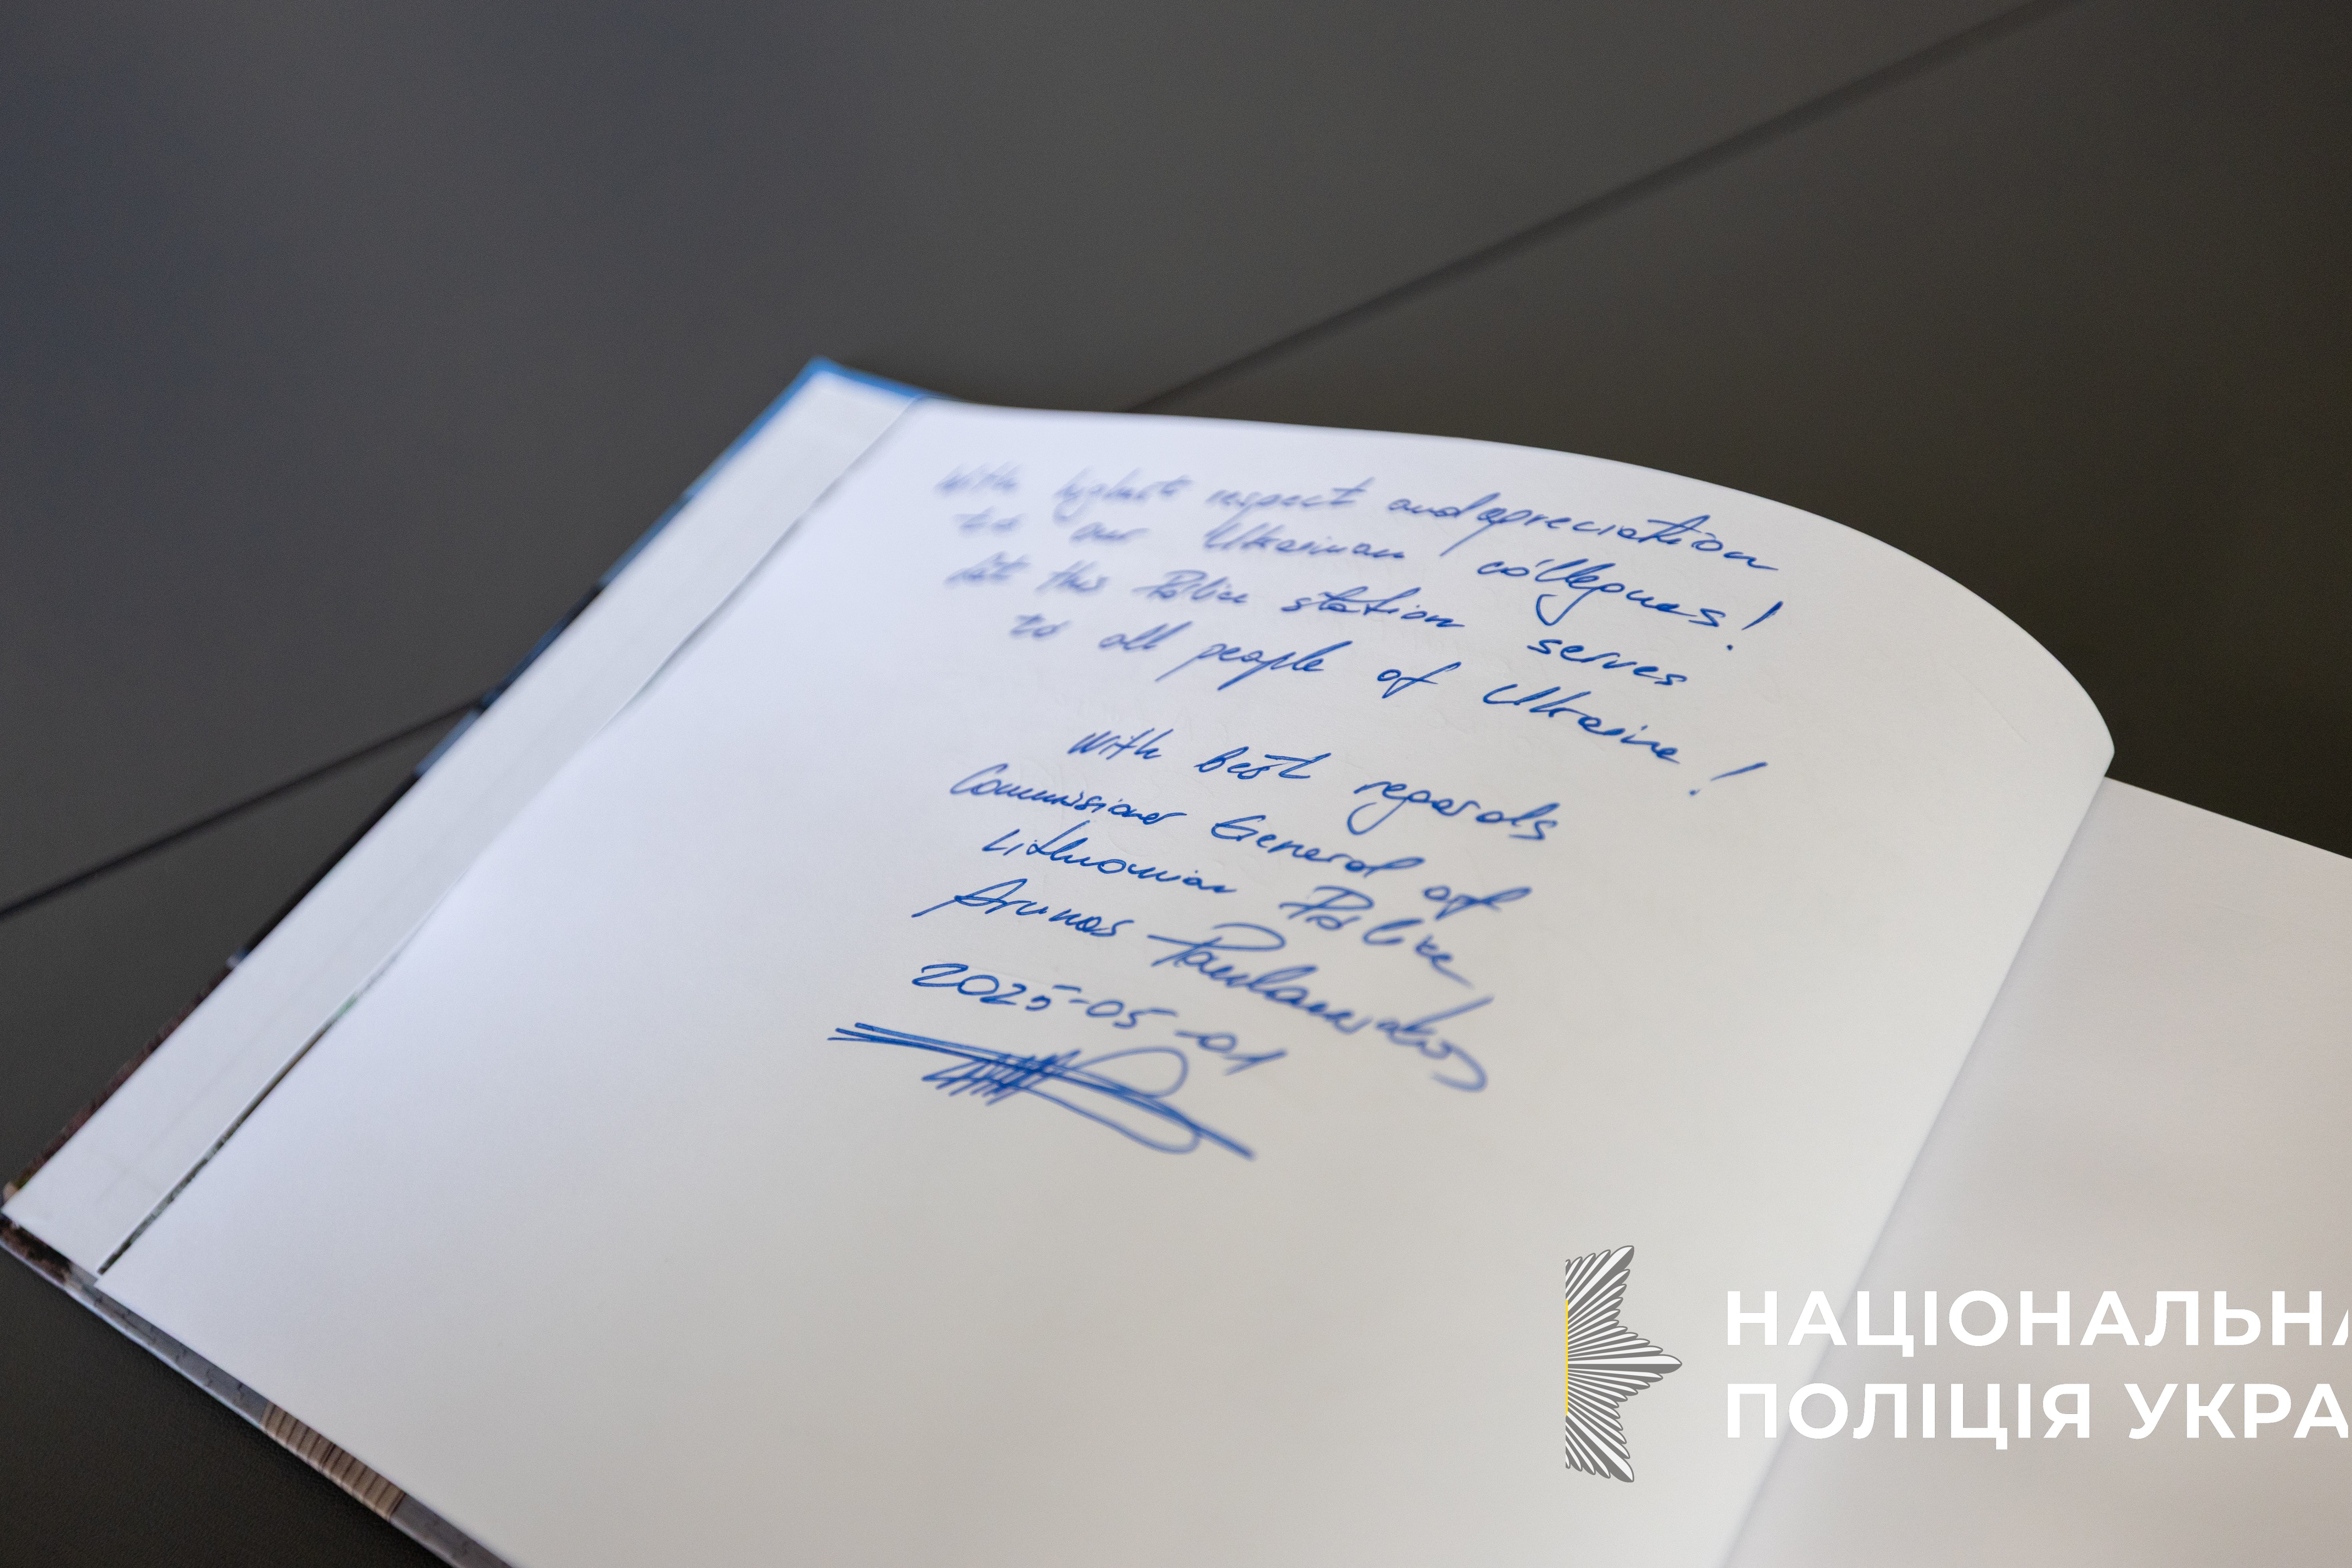 With highest respect and apreciation
to our Ukrainian collegues!
Let this Police station serves
to all people of Ukraine!
With best regards
Commisioner General of
Lithuanian Police
Arunas Paulauskas
2025-05-01
НАЦІОНАЛЬНА
ПОЛІЦІЯ УКРА